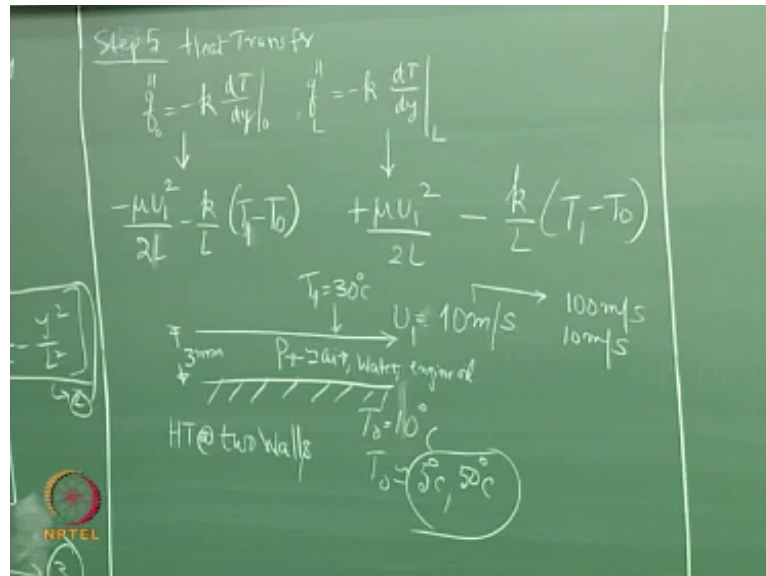 Step 5 Heat Transfr
q''₀ = -k dT/dy|₀ , q''L = -k dT/dy|L
↓ ↓
-μU₁²/2L - k/L (T₁-T₀) +μU₁²/2L - k/L (T₁-T₀)
T₁=30°C
U₁ = 10m/s → 100m/s
10m/s
- y²/L²]
3mm
air, water, engine oil
T₀=10°C
HT@ two Walls
T₀= 5°C, 50°C
2
3
NPTEL